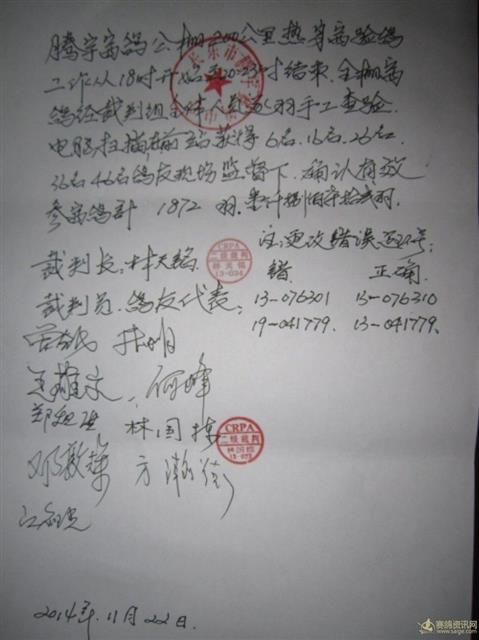 腾宇赛鸽公棚200公里热身赛验鸽
工作从18时开始至20:23时结束.全棚赛
鸽经裁判组全体人员逐羽手工查验.
电脑扫描,前站获得6名.16名.26名.
36名46名鸽友现场监督下.确认有效
参赛鸽计 1872 羽.壹仟捌佰柒拾贰羽
注:更改错误环号:
裁判长:林天铭 错 正确
CRPA
二级裁判
林天铭
13-034
裁判员.鸽友代表: 13-076301 13-076310
19-041779. 13-041779.
林明
何峰
郑 林国栋
CRPA
二级裁判
林国栋
邓 方
江
2014年.11月22日.
赛鸽资讯网
www.saige.com